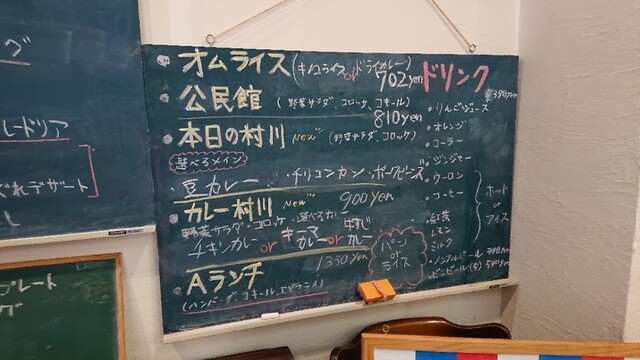 グ
レードリア
ぐれデザート
プレート
グ
オムライス (キノコライス or ドライカレー) 702yen
公民館 (野菜サラダ、コロッケ、コキール) 810yen
本日の村川 New (野菜サラダ、コロッケ)
選べるメイン
・豆カレー ・チリコンカン ・ポークビーンズ
900yen
カレー村川 New
野菜サラダ・コロッケ・選べるカレー
チキンカレー or キーマカレー or 牛すじカレー
1350yen
Aランチ
(ハンバーグ、コキール、エビフライ)
パン
or
ライス
ドリンク
390yen
・りんごジュース
・オレンジ
・コーラー
・ジンジャー
・ウーロン
・コーヒー
・紅茶
レモン
ミルク
ホット
or
アイス
・ノンアルビール
・ビンビール